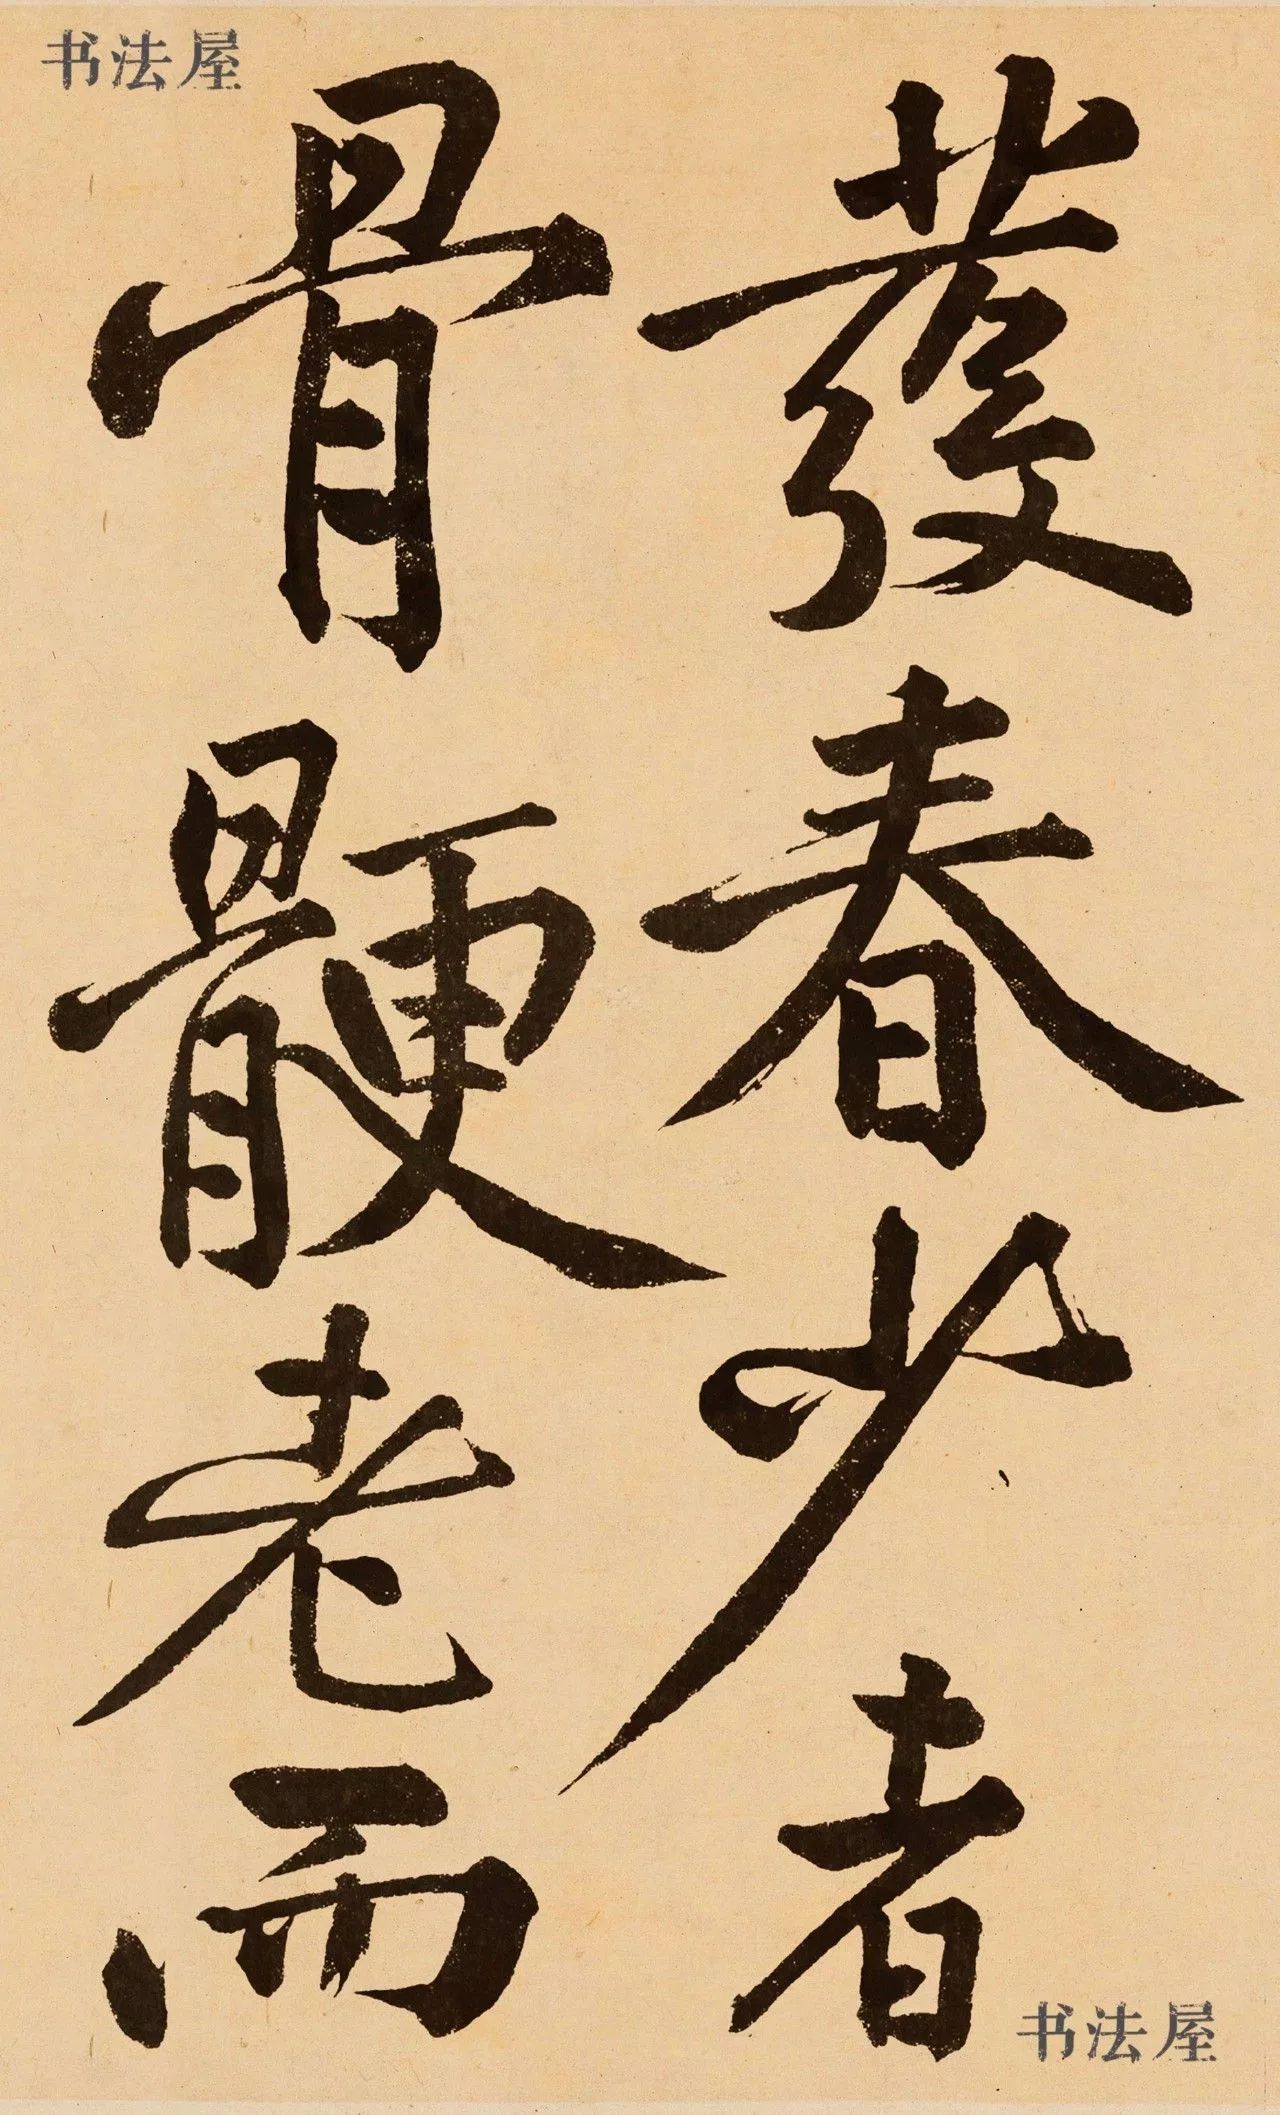 书法屋
發春少者
骨骾老而
书法屋